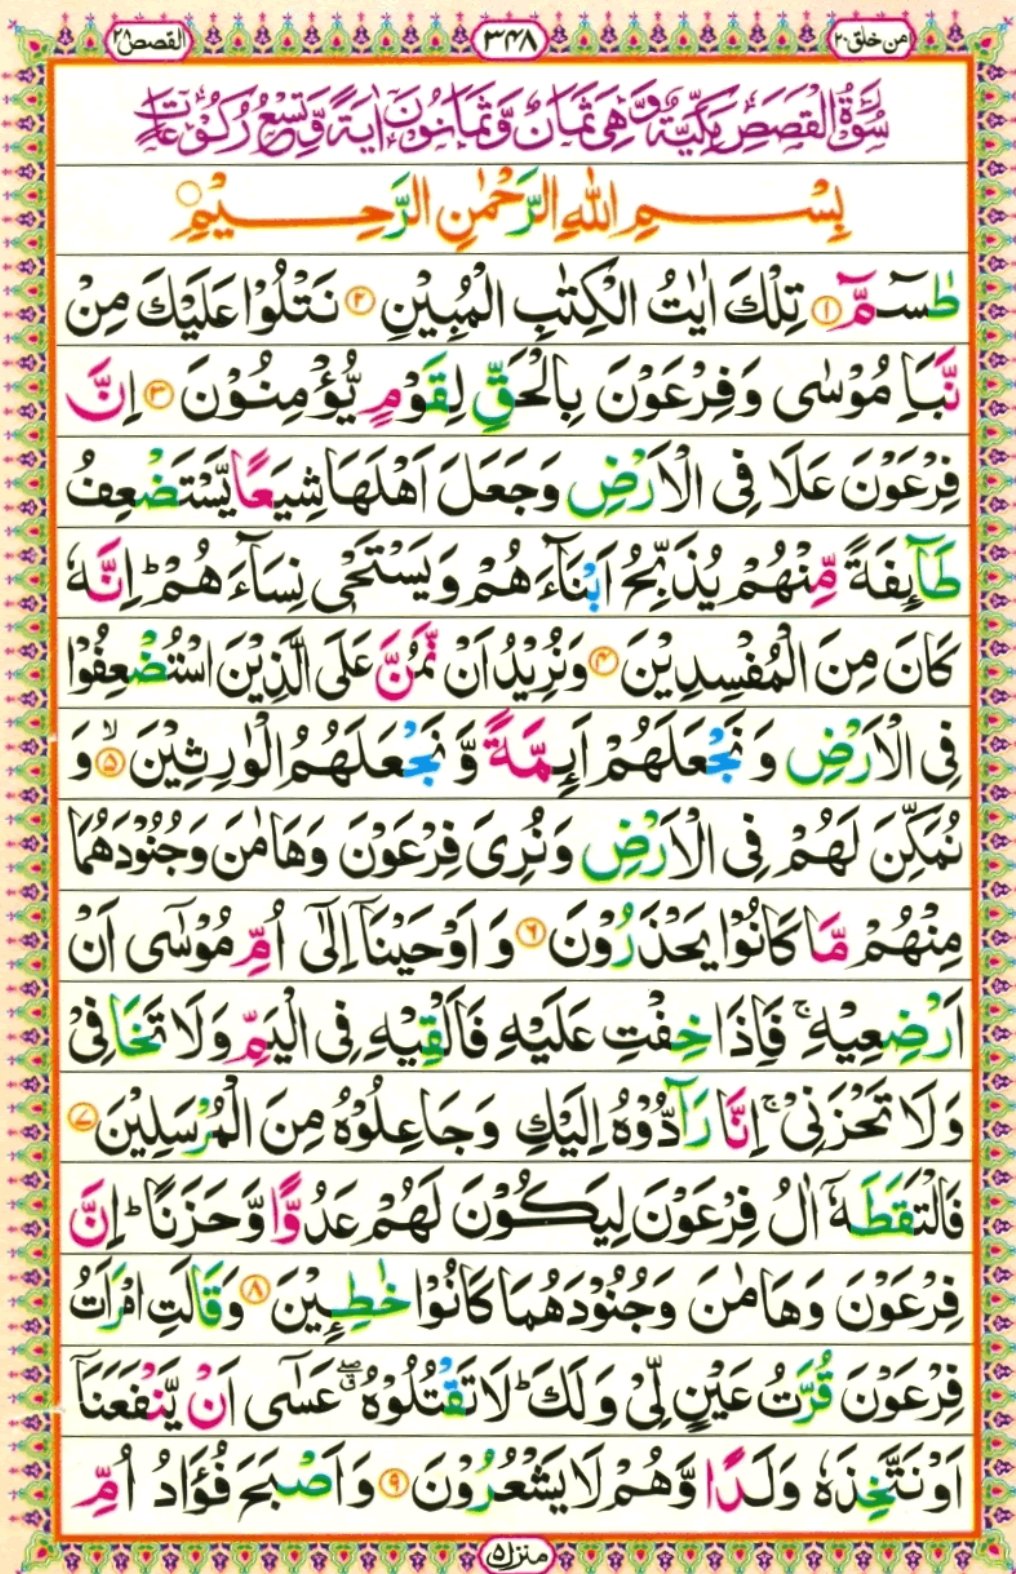 من خلق ۲۰
۳۴۸
القصص ۲۸
سُوْرَةُ الْقَصَصِ مَكِّيَّةٌ وَّهِیَ ثَمَانٌ وَّثَمَانُوْنَ اٰيَةً وَّتِسْعُ رُكُوْعَاتٍ
بِسْمِ اللّٰهِ الرَّحْمٰنِ الرَّحِيْمِ
طٰسٓمّٓ ۝۱ تِلْكَ اٰيٰتُ الْكِتٰبِ الْمُبِيْنِ ۝۲ نَتْلُوْا عَلَيْكَ مِنْ
نَّبَاِ مُوْسٰى وَفِرْعَوْنَ بِالْحَقِّ لِقَوْمٍ يُّؤْمِنُوْنَ ۝۳ اِنَّ
فِرْعَوْنَ عَلَا فِى الْاَرْضِ وَجَعَلَ اَهْلَهَا شِيَعًا يَّسْتَضْعِفُ
طَآىِٕفَةً مِّنْهُمْ يُذَبِّحُ اَبْنَآءَهُمْ وَيَسْتَحْىٖ نِسَآءَهُمْ ؕ اِنَّهٗ
كَانَ مِنَ الْمُفْسِدِيْنَ ۝۴ وَنُرِيْدُ اَنْ نَّمُنَّ عَلَى الَّذِيْنَ اسْتُضْعِفُوْا
فِى الْاَرْضِ وَنَجْعَلَهُمْ اَىِٕمَّةً وَّنَجْعَلَهُمُ الْوٰرِثِيْنَ ۙ ۝۵ وَ
نُمَكِّنَ لَهُمْ فِى الْاَرْضِ وَنُرِىَ فِرْعَوْنَ وَهَامٰنَ وَجُنُوْدَهُمَا
مِنْهُمْ مَّا كَانُوْا يَحْذَرُوْنَ ۝۶ وَاَوْحَيْنَاۤ اِلٰٓى اُمِّ مُوْسٰٓى اَنْ
اَرْضِعِيْهِ ۚ فَاِذَا خِفْتِ عَلَيْهِ فَاَلْقِيْهِ فِى الْيَمِّ وَلَا تَخَافِىْ
وَلَا تَحْزَنِىْ ۚ اِنَّا رَآدُّوْهُ اِلَيْكِ وَجَاعِلُوْهُ مِنَ الْمُرْسَلِيْنَ ۝۷
فَالْتَقَطَهٗۤ اٰلُ فِرْعَوْنَ لِيَكُوْنَ لَهُمْ عَدُوًّا وَّحَزَنًا ؕ اِنَّ
فِرْعَوْنَ وَهَامٰنَ وَجُنُوْدَهُمَا كَانُوْا خٰطِـِٕيْنَ ۝۸ وَقَالَتِ امْرَاَتُ
فِرْعَوْنَ قُرَّتُ عَيْنٍ لِّىْ وَلَكَ ؕ لَا تَقْتُلُوْهُ ۖۗ عَسٰٓى اَنْ يَّنْفَعَنَاۤ
اَوْ نَتَّخِذَهٗ وَلَدًا وَّهُمْ لَا يَشْعُرُوْنَ ۝۹ وَاَصْبَحَ فُؤَادُ اُمِّ
منزل ۵